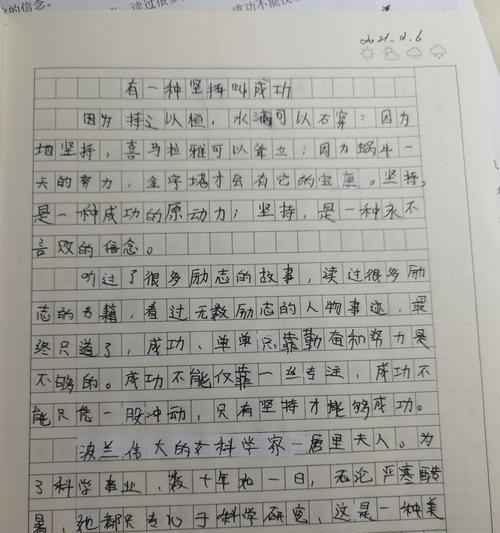 的信念。
2021.2.6
有一种坚持叫成功
因为持之以恒，水滴可以石穿；因为
地坚持，喜马拉雅可以耸立；因为蜗牛一
天的努力，金字塔才会有它的宝座。坚持，
是一种成功的原动力；坚持，是一种永不
言败的信念。
听过了很多励志的故事，读过很多励
志的书籍，看过无数励志的人物事迹，最
终只道了，成功、单单只靠勤奋和努力是
不够的。成功不能仅靠一丝专注，成功不
能只凭一股冲动，只有坚持才能够成功。
波兰伟大的科学家—居里夫人。为
了科学事业，数十年如一日，无论严寒酷
暑，她都只专心于科学研究，这是一种美